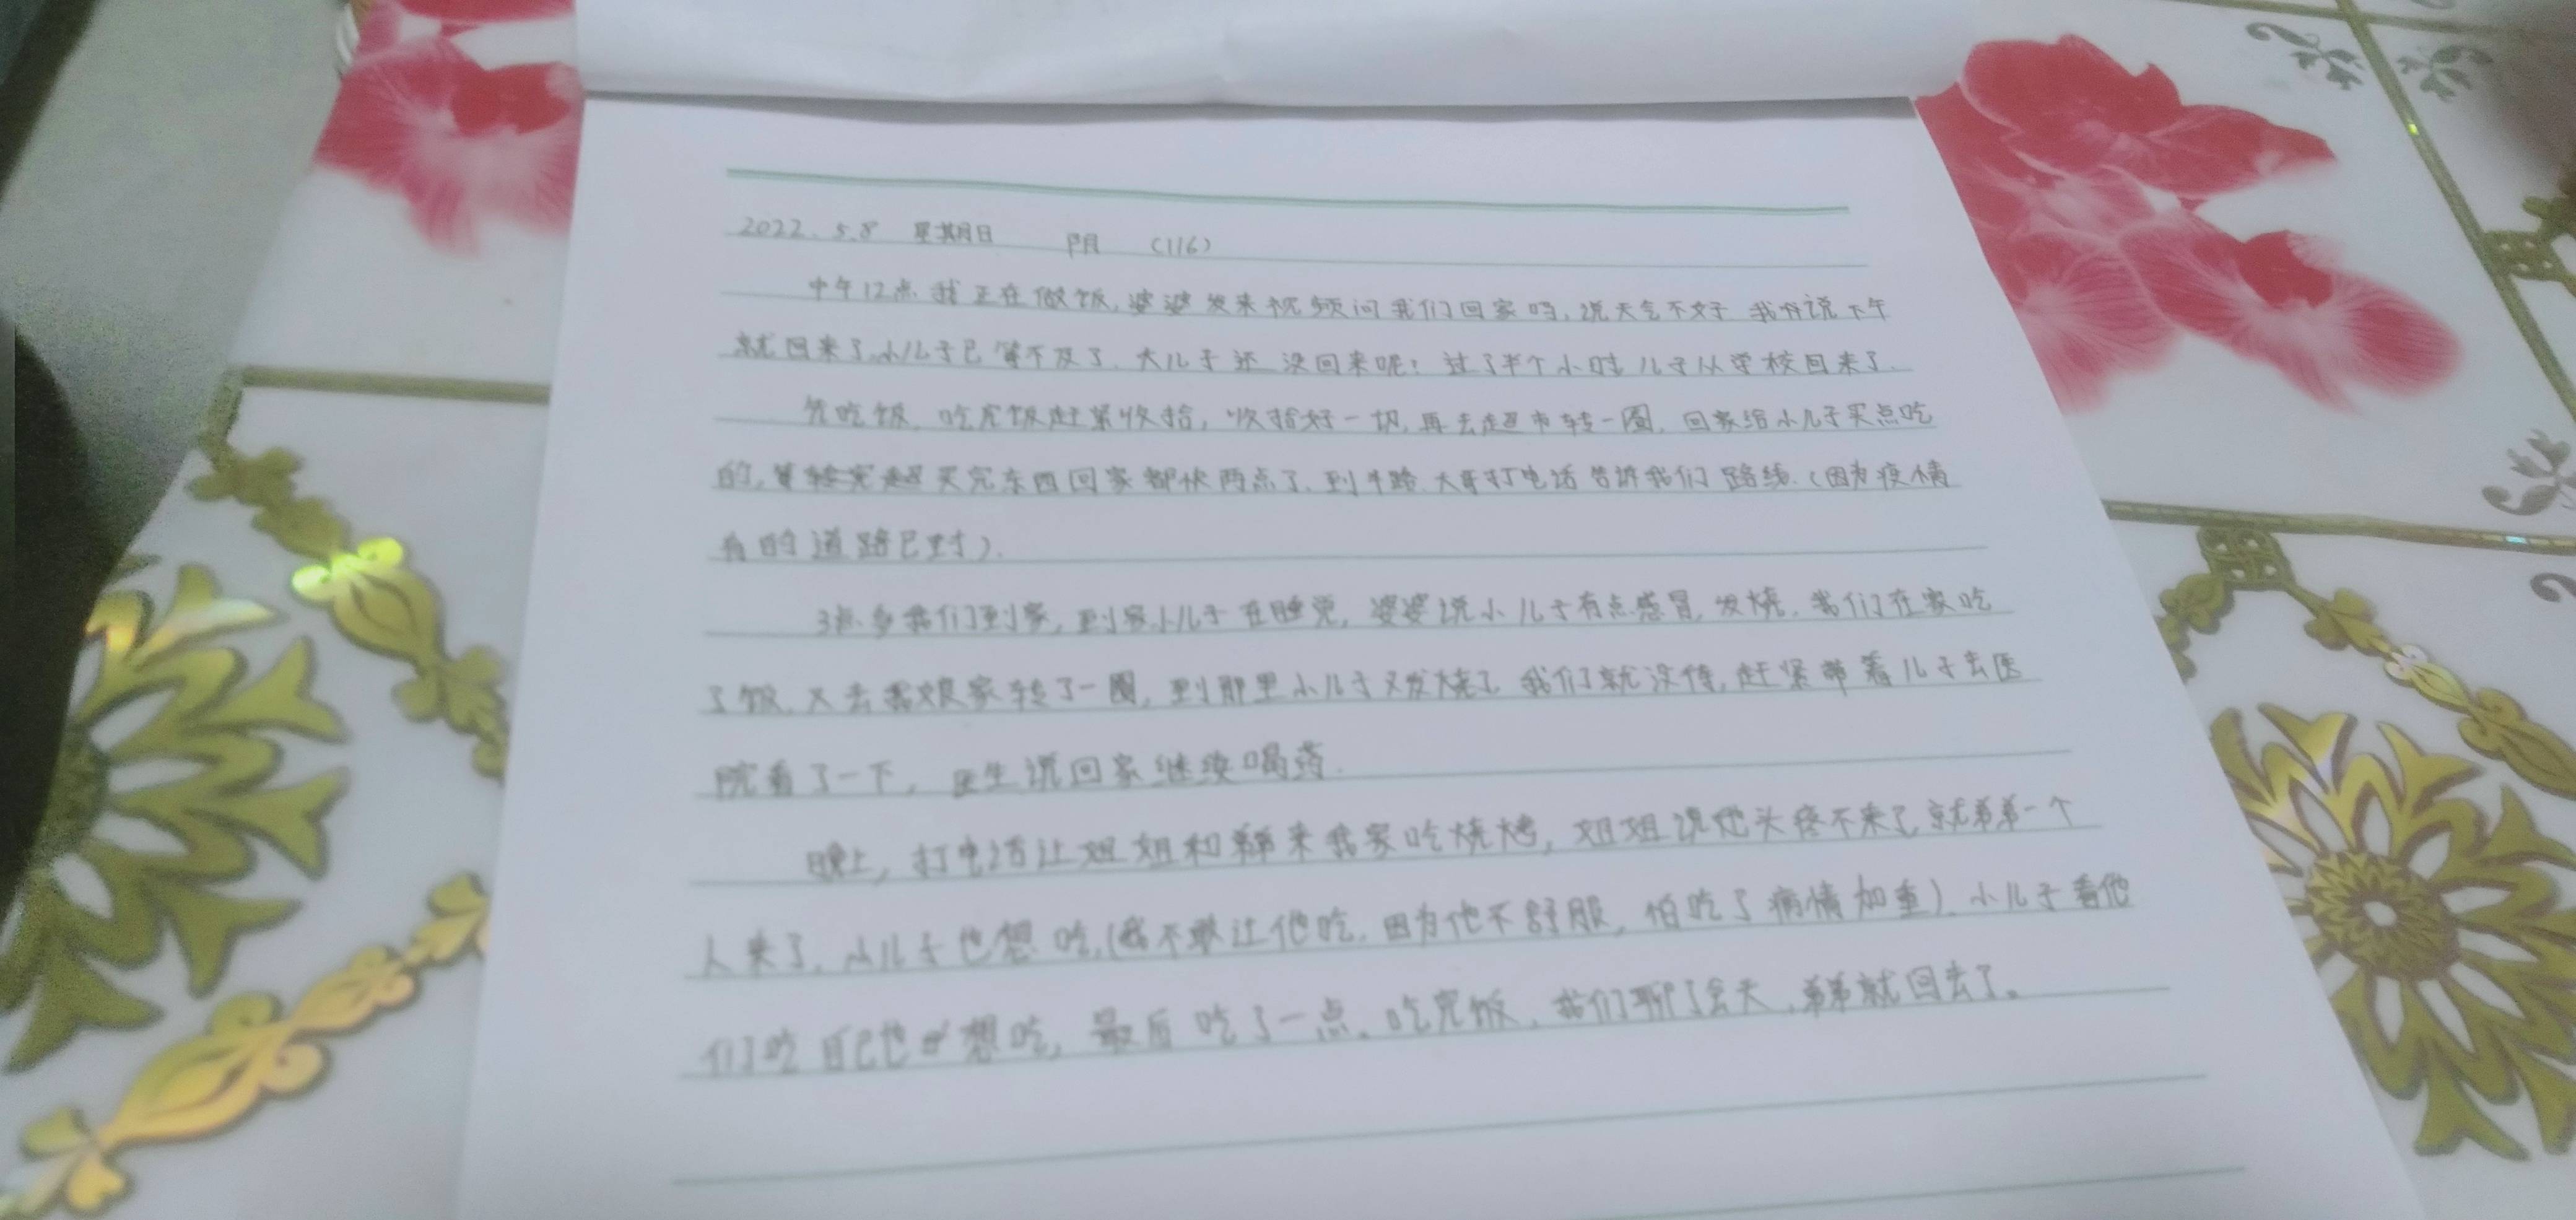 2022.5.8 星期日 阴 (116)
中午12点我正在做饭,婆婆发来视频问我们回家吗,说天气不好 我 说下午
就回来了,小儿子已等不及了.大儿子还没回来呢!过了半个小时儿子从学校回来了.
先吃饭,吃完饭赶紧收拾,收拾好一切,再去超市转一圈,回家给小儿子买点吃
的, 买完东西回家都快两点了.到半路,大哥打电话告诉我们路线.(因为疫情
有的道路已封).
3点多我们到家,到家小儿子在睡觉,婆婆说小儿子有点感冒,发烧.我们在家吃
了饭,又去我娘家转了一圈,到那里小儿子又发烧了 我们就没停,赶紧带着儿子去医
院看了一下,医生说回家继续喝药.
晚上,打电话让姐姐和弟弟来我家吃烧烤,姐姐说他头疼不来了,就弟弟一个
人来了,小儿子也想吃,(我不敢让他吃,因为他不舒服,怕吃了病情加重).小儿子看他
们吃 自己也 想吃,最后吃了一点。吃完饭,我们聊了会天,弟弟就回去了。